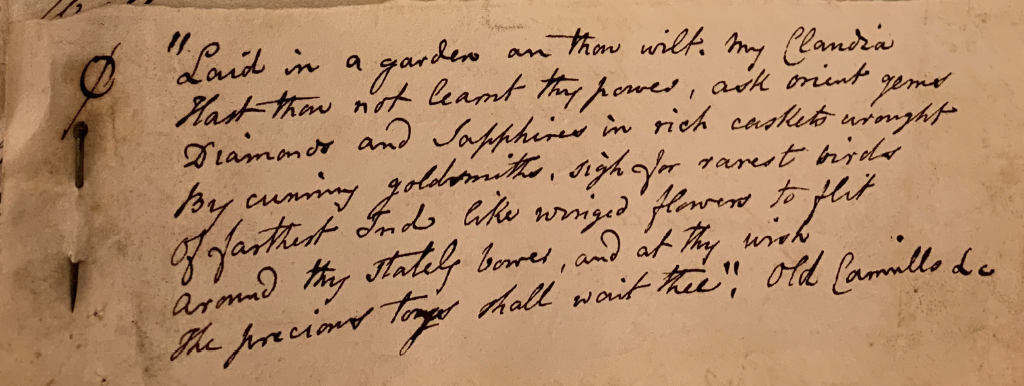 "Laid in a garden an thou wilt. My Claudia
Hast thou not learnt thy power, ask orient gems
Diamonds and Sapphires in rich caskets wrought
By cunning goldsmiths, sigh for rarest birds
Of farthest Ind like winged flowers to flit
Around thy stately bower, and at thy wish
The precious toys shall wait thee". Old Camillo &c